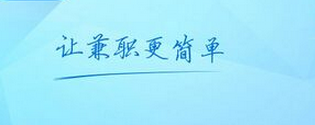 让兼职更简单